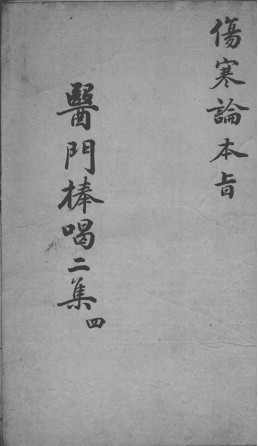 傷寒論本旨
醫門棒喝二集四